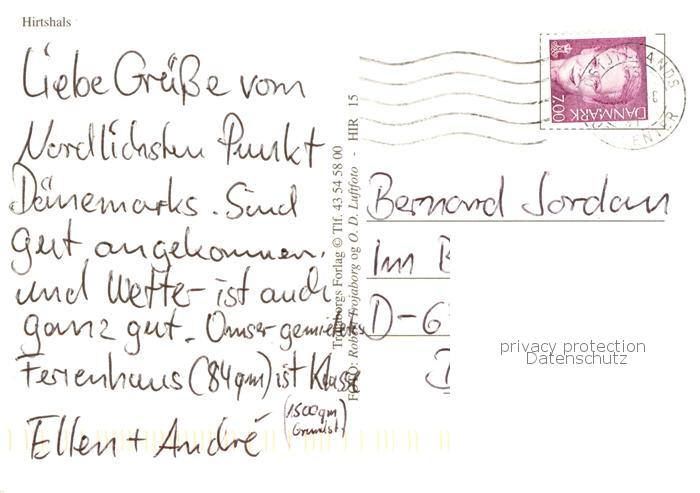 Hirtshals
Liebe Grüße vom
Nordlichsten Punkt
Dänemarks. Sind
gut angekommen.
und Wetter ist auch
ganz gut. Unser gemietetes
Ferienhaus (84qm) ist Klasse
(1500qm
Grundst.)
Ellen + André
Forlag © Tlf. 43 54 58 00
og O. D. Luftfoto - HIR 15
DANMARK
7.00
Bernard Jordan
Im B
D-6
privacy protection
Datenschutz